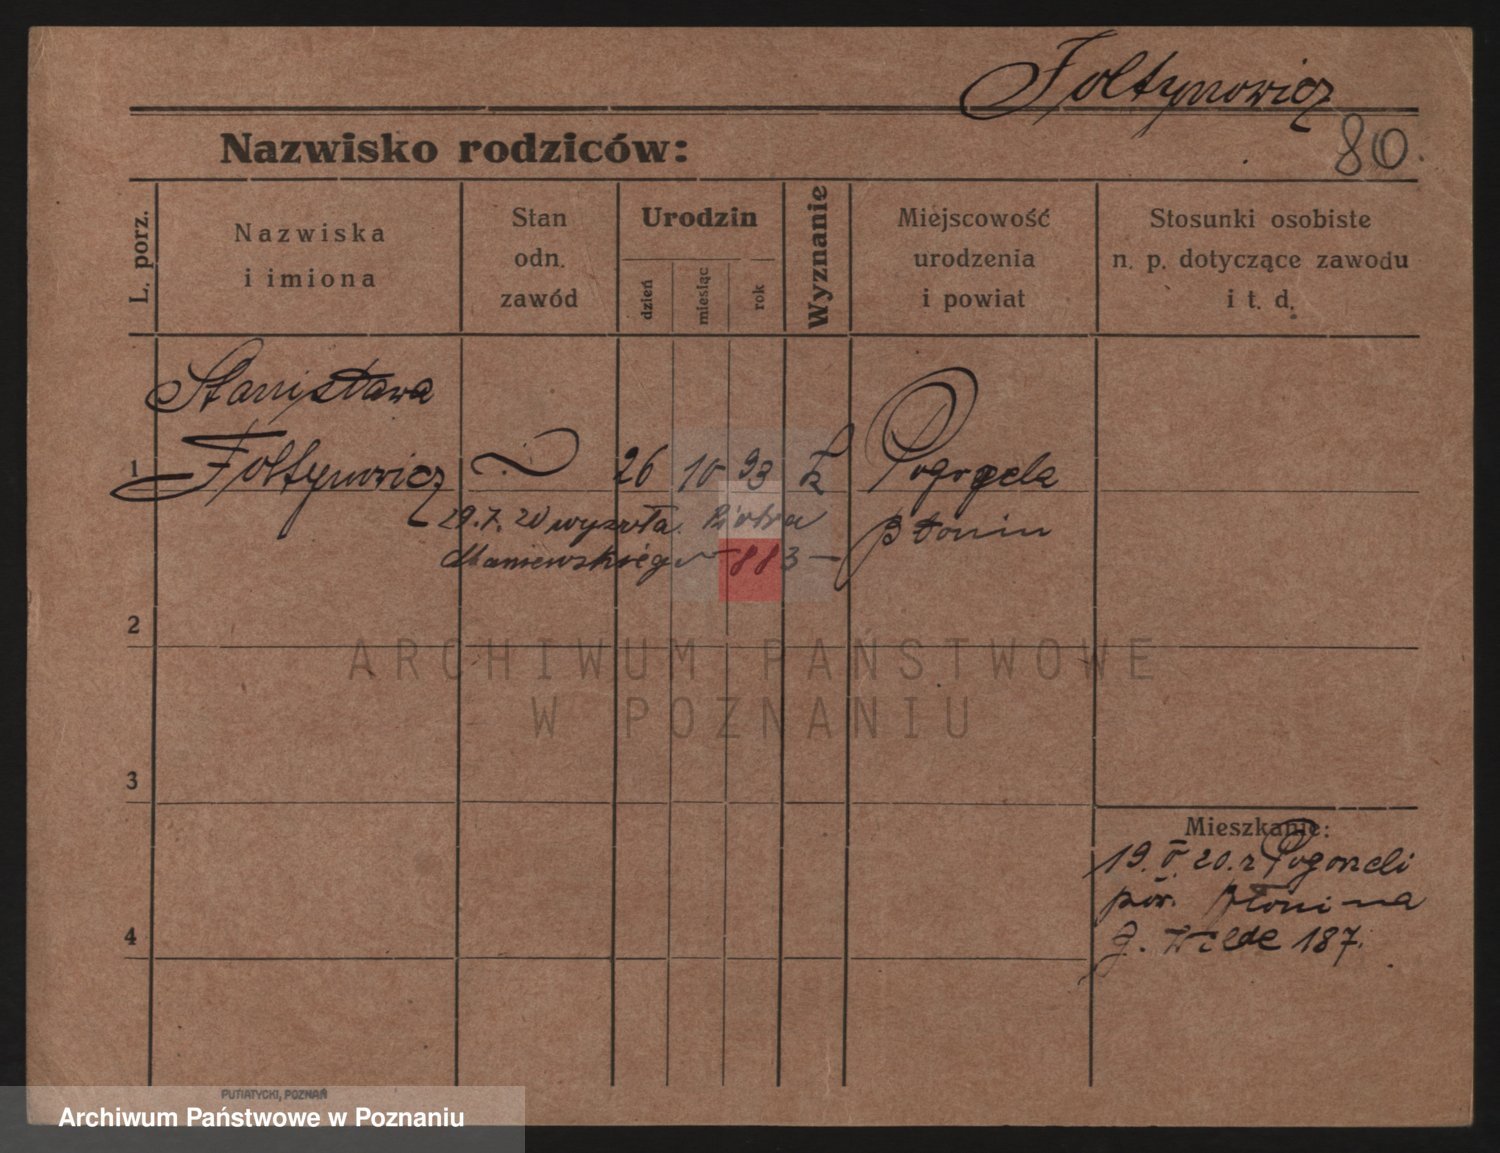 Foltynowicz
80.
Nazwisko rodziców:
L. porz.
Nazwiska
i imiona
Stan
odn.
zawód
Urodzin
dzień
miesiąc
rok
Wyznanie
Miejscowość
urodzenia
i powiat
Stosunki osobiste
n. p. dotyczące zawodu
i t. d.
Stanisława
1 Foltynowicz 26 10 93 k Pogorzela
29.7.20 Piotra
883
2
ARCHIWUM PAŃSTWOWE
W POZNANIU
3
Mieszkanie:
19.V.20. z Pogorzeli
pow.
4
187.
PUTIATYCKI, POZNAŃ
Archiwum Państwowe w Poznaniu